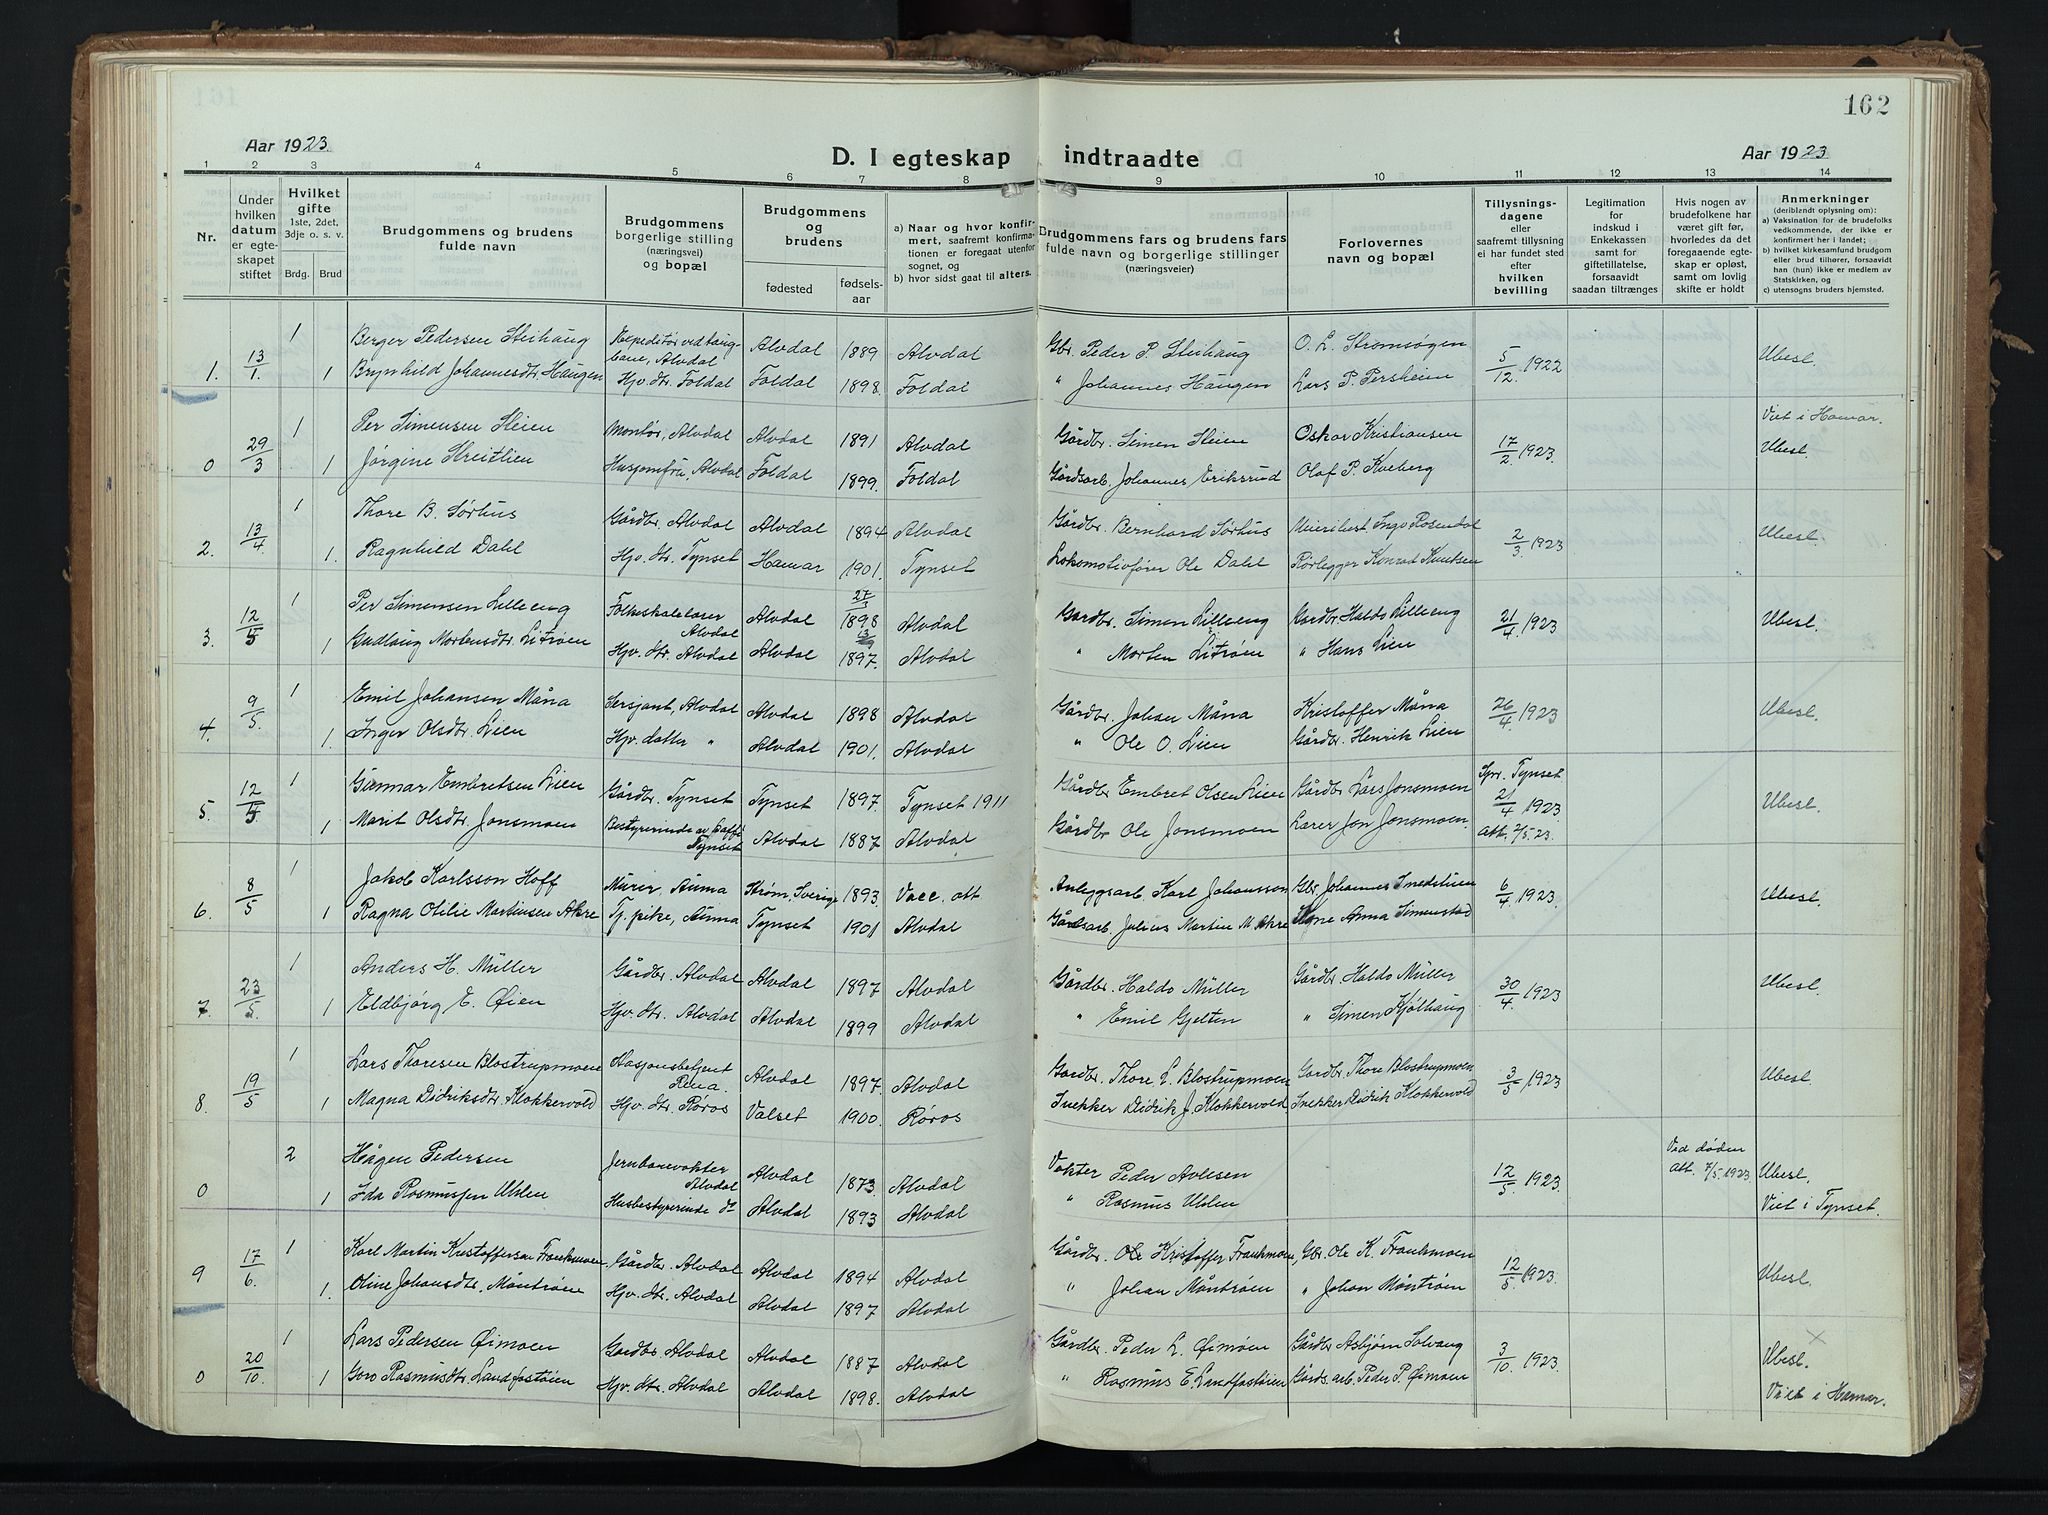 162
Aar 1923.
D. I egteskap indtraadte
Aar 1923
1 2 3 4 5 6 7 8 9 10 11 12 13 14
Nr.
Under hvilken datum er egteskapet stiftet
Hvilket gifte 1ste, 2det, 3dje o. s. v.
Brdg. Brud
Brudgommens og brudens fulde navn
Brudgommens borgerlige stilling (næringsvei) og bopæl
Brudgommens og brudens
fødested
fødselsaar
a) Naar og hvor konfirmert, saafremt konfirmationen er foregaat utenfor sognet, og
b) hvor sidst gaat til alters.
Brudgommens fars og brudens fars fulde navn og borgerlige stillinger (næringsveier)
Forlovernes navn og bopæl
Tillysningsdagene eller saafremt tillysning ei har fundet sted efter hvilken bevilling
Legitimation for indskud i Enkekassen samt for giftetillatelse, forsaavidt saadan tiltrænges
Hvis nogen av brudefolkene har været gift før, hvorledes da det foregaaende egteskap er opløst, samt om lovlig skifte er holdt
Anmerkninger (deriblendt oplysning om):
a) Vaksination for de brudefolks vedkommende, der ikke er konfirmert her i landet;
b) hvilket kirkesamfund brudgom eller brud tilhører, forsaavidt han (hun) ikke er medlem av Statskirken, og
c) utensogns bruders hjemsted.
1. 13/1. 1 Berger Pedersen Steihaug Ekspeditør ved Haugbane, Alvdal Alvdal 1889 Alvdal Gbr. Peder P. Steihaug O. L. Strømsøgen 5/12. 1922 Ubesl.
1 Brynhild Johannesdtr. Haugen Hjv. dtr. Foldal Foldal 1898. Foldal " Johannes Haugen Lars P. Persheim
0 29/3 1 Per Simensen Steien Montør, Alvdal Alvdal 1891 Alvdal Gårdbr. Simen Steien Oskar Kristiansen 17/2. 1923. Viet i Hamar. Ubesl.
1 Jørgine Streitlien Husjomfru, Alvdal Foldal 1899. Foldal Gårdsarb. Johannes Eriksrud Olaf P. Kveberg
2. 13/4. 1 Thore B. Sørhus Gårdbr. Alvdal Alvdal 1894 Alvdal Gårdbr. Bernhard Sørhus Meieribest. Inge Rosendal 2/3. 1923 Ubesl.
1. Ragnhild Dahl Hjv. dtr. Tynset Hamar 1901. Tynset Lokomotivfører Ole Dahl Rørlegger Konrad Knutsen
3. 12/5 1 Per Simensen Lilleeng Folkeskolelærer Alvdal Alvdal 27/3 1898 Alvdal Gardbr. Simen Lilleeng Gardbr. Haldo Lilleeng 21/4. 1923 Ubesl.
1 Gudlaug Mortensdtr. Litrøen Hjv. dtr. Alvdal Alvdal 13/9 1897. Alvdal " Morten Litrøen " Hans Lien
4. 9/5. 1 Emil Johansen Måna Sersjant, Alvdal Alvdal 1898 Alvdal Gårdbr. Johan Måna Kristoffer Måna 26/4 1923 Ubesl.
1. Inger Olsdtr. Lien Hjv. datter " Alvdal 1901. Alvdal " Ole O. Lien Gårdbr. Henrik Lien
5. 12/5 1 Gunnar Embretsen Lien Gårdbr. Tynset Tynset 1897. Tynset 1911 Gårdbr Embret Olsen Lien Gårdbr Lars Jonsmoen Spr. Tynset 21/4 1923. Att. 2/5. 23. Ubesl.
1 Marit Olsdtr. Jonsmoen Bestyrerinde av kaffe Tynset Alvdal 1887 Alvdal Gårdbr Ole Jonsmoen Lærer Jon Jonsmoen.
6. 8/5 1 Jakob Karlsson Hoff Murer, Auma Strøm, Sverige 1893. Vacc. att Anleggsarb. Karl Johansson Gbr Johannes Smedstuen 6/4. 1923. Ubesl.
1 Ragna Otilie Martinsen Akre Tj. pike, Auma Tynset 1901 Alvdal Gårdsarb. Julius Martin M. Akre Kone Anna Simenstad
7. 23/5. 1 Anders H. Müller Gårdbr. Alvdal Alvdal 1897 Alvdal Gårdbr. Haldo Müller Gårdbr. Haldo Müller 30/4. 1923 Ubesl.
1 Eldbjørg E. Øien Hjv. dtr. Alvdal Alvdal 1899 Alvdal " Emil Gjelten " Simen Kjølhaug
8. 19/5 1 Lars Thoresen Blostrupmoen Stasjonsbetjent Rena Alvdal 1897. Alvdal Gardbr. Thore L. Blostrupmoen Gardbr. Thore Blostrupmoen 3/5 1923 Ubesl.
1 Magna Didriksdtr. Klokkervold Hjv. dtr. Røros Valset 1900. Røros Snekker Didrik J. Klokkervold Snekker Didrik Klokkervold
0 2 Hågen Pedersen Jernbanevokter Alvdal Alvdal 1873 Alvdal Vokter Peder Avlesen 12/5. 1923. Ved døden att. 7/5. 1923 Ubesl.
1 Ida Rasmussen Uhlen Husbestyrerinde do Alvdal 1893 Alvdal " Rasmus Uhlen Viet i Tynset.
9 17/6. 1 Karl Martin Kristoffersen Frankmoen Gårdbr. Alvdal Alvdal 1894 Alvdal Gårdbr. Ole Kristoffer Frankmoen, Gbr. Ole K. Frankmoen 12/5. 1923. Ubesl.
1. Oline Johansdtr. Måntrøen Hjv. dtr. Alvdal Alvdal 1897 Alvdal " Johan Måntrøen " Johan Måntrøen
0 20/10. 1 Lars Pedersen Øimoen Gardbr. Alvdal Alvdal 1887 Alvdal Gårdbr. Peder L. Øimoen Gårdbr Asbjørn Solvang 3/10. 1923. Ubesl.
1 Goro Rasmusdtr. Landfastøien Hjv. dtr. Alvdal Alvdal 1898. Alvdal " Rasmus E. Landfastøien Gårds.arb. Peder P. Øimoen Viet i Hamar.